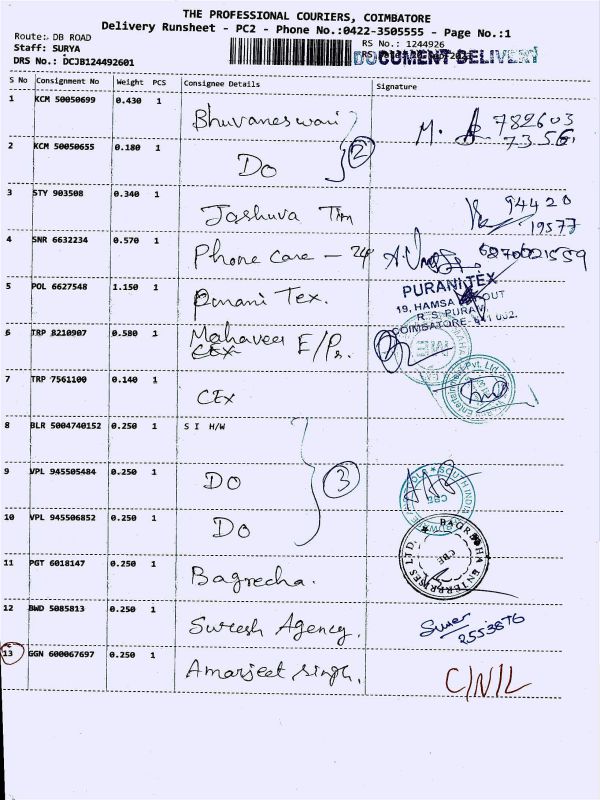 THE PROFESSIONAL COURIERS, COIMBATORE
Delivery Runsheet - PC2 - Phone No.:0422-3505555 - Page No.:1
Route: DB ROAD
Staff: SURYA
RS No.: 1244926
DRS No.: DCJB124492601
DOCUMENT DELIVERY
S No Consignment No Weight PCS Consignee Details Signature
1 KCM 50050699 0.430 1 Bhuvaneswari M. 782603
7356
2 KCM 50050655 0.180 1 Do 2
3 STY 903508 0.340 1 Jashuva 94420
19577
4 SNR 6632234 0.570 1 Phone Care - 24 6870021559
5 POL 6627548 1.150 1 Purani Tex. PURANI TEX
19, HAMSA
R.S. PURAM,
COIMBATORE- 641 002.
6 TRP 8210907 0.580 1 Mahaveer E/Ps.
CEX
7 TRP 7561100 0.140 1 CEX Entertainment Pvt. Ltd.
8 BLR 5004740152 0.250 1 S I H/W
9 VPL 945505484 0.250 1 DO 3 SOUTH INDIA
CBE
10 VPL 945506852 0.250 1 DO
11 PGT 6018147 0.250 1 Bagrecha. BAGRECHA ENTERPRISES LTD.
CBE
12 BWD 5085813 0.250 1 Suresh Agency.
2553876
13 GGN 600067697 0.250 1 Amarjeet Singh. C/N/L